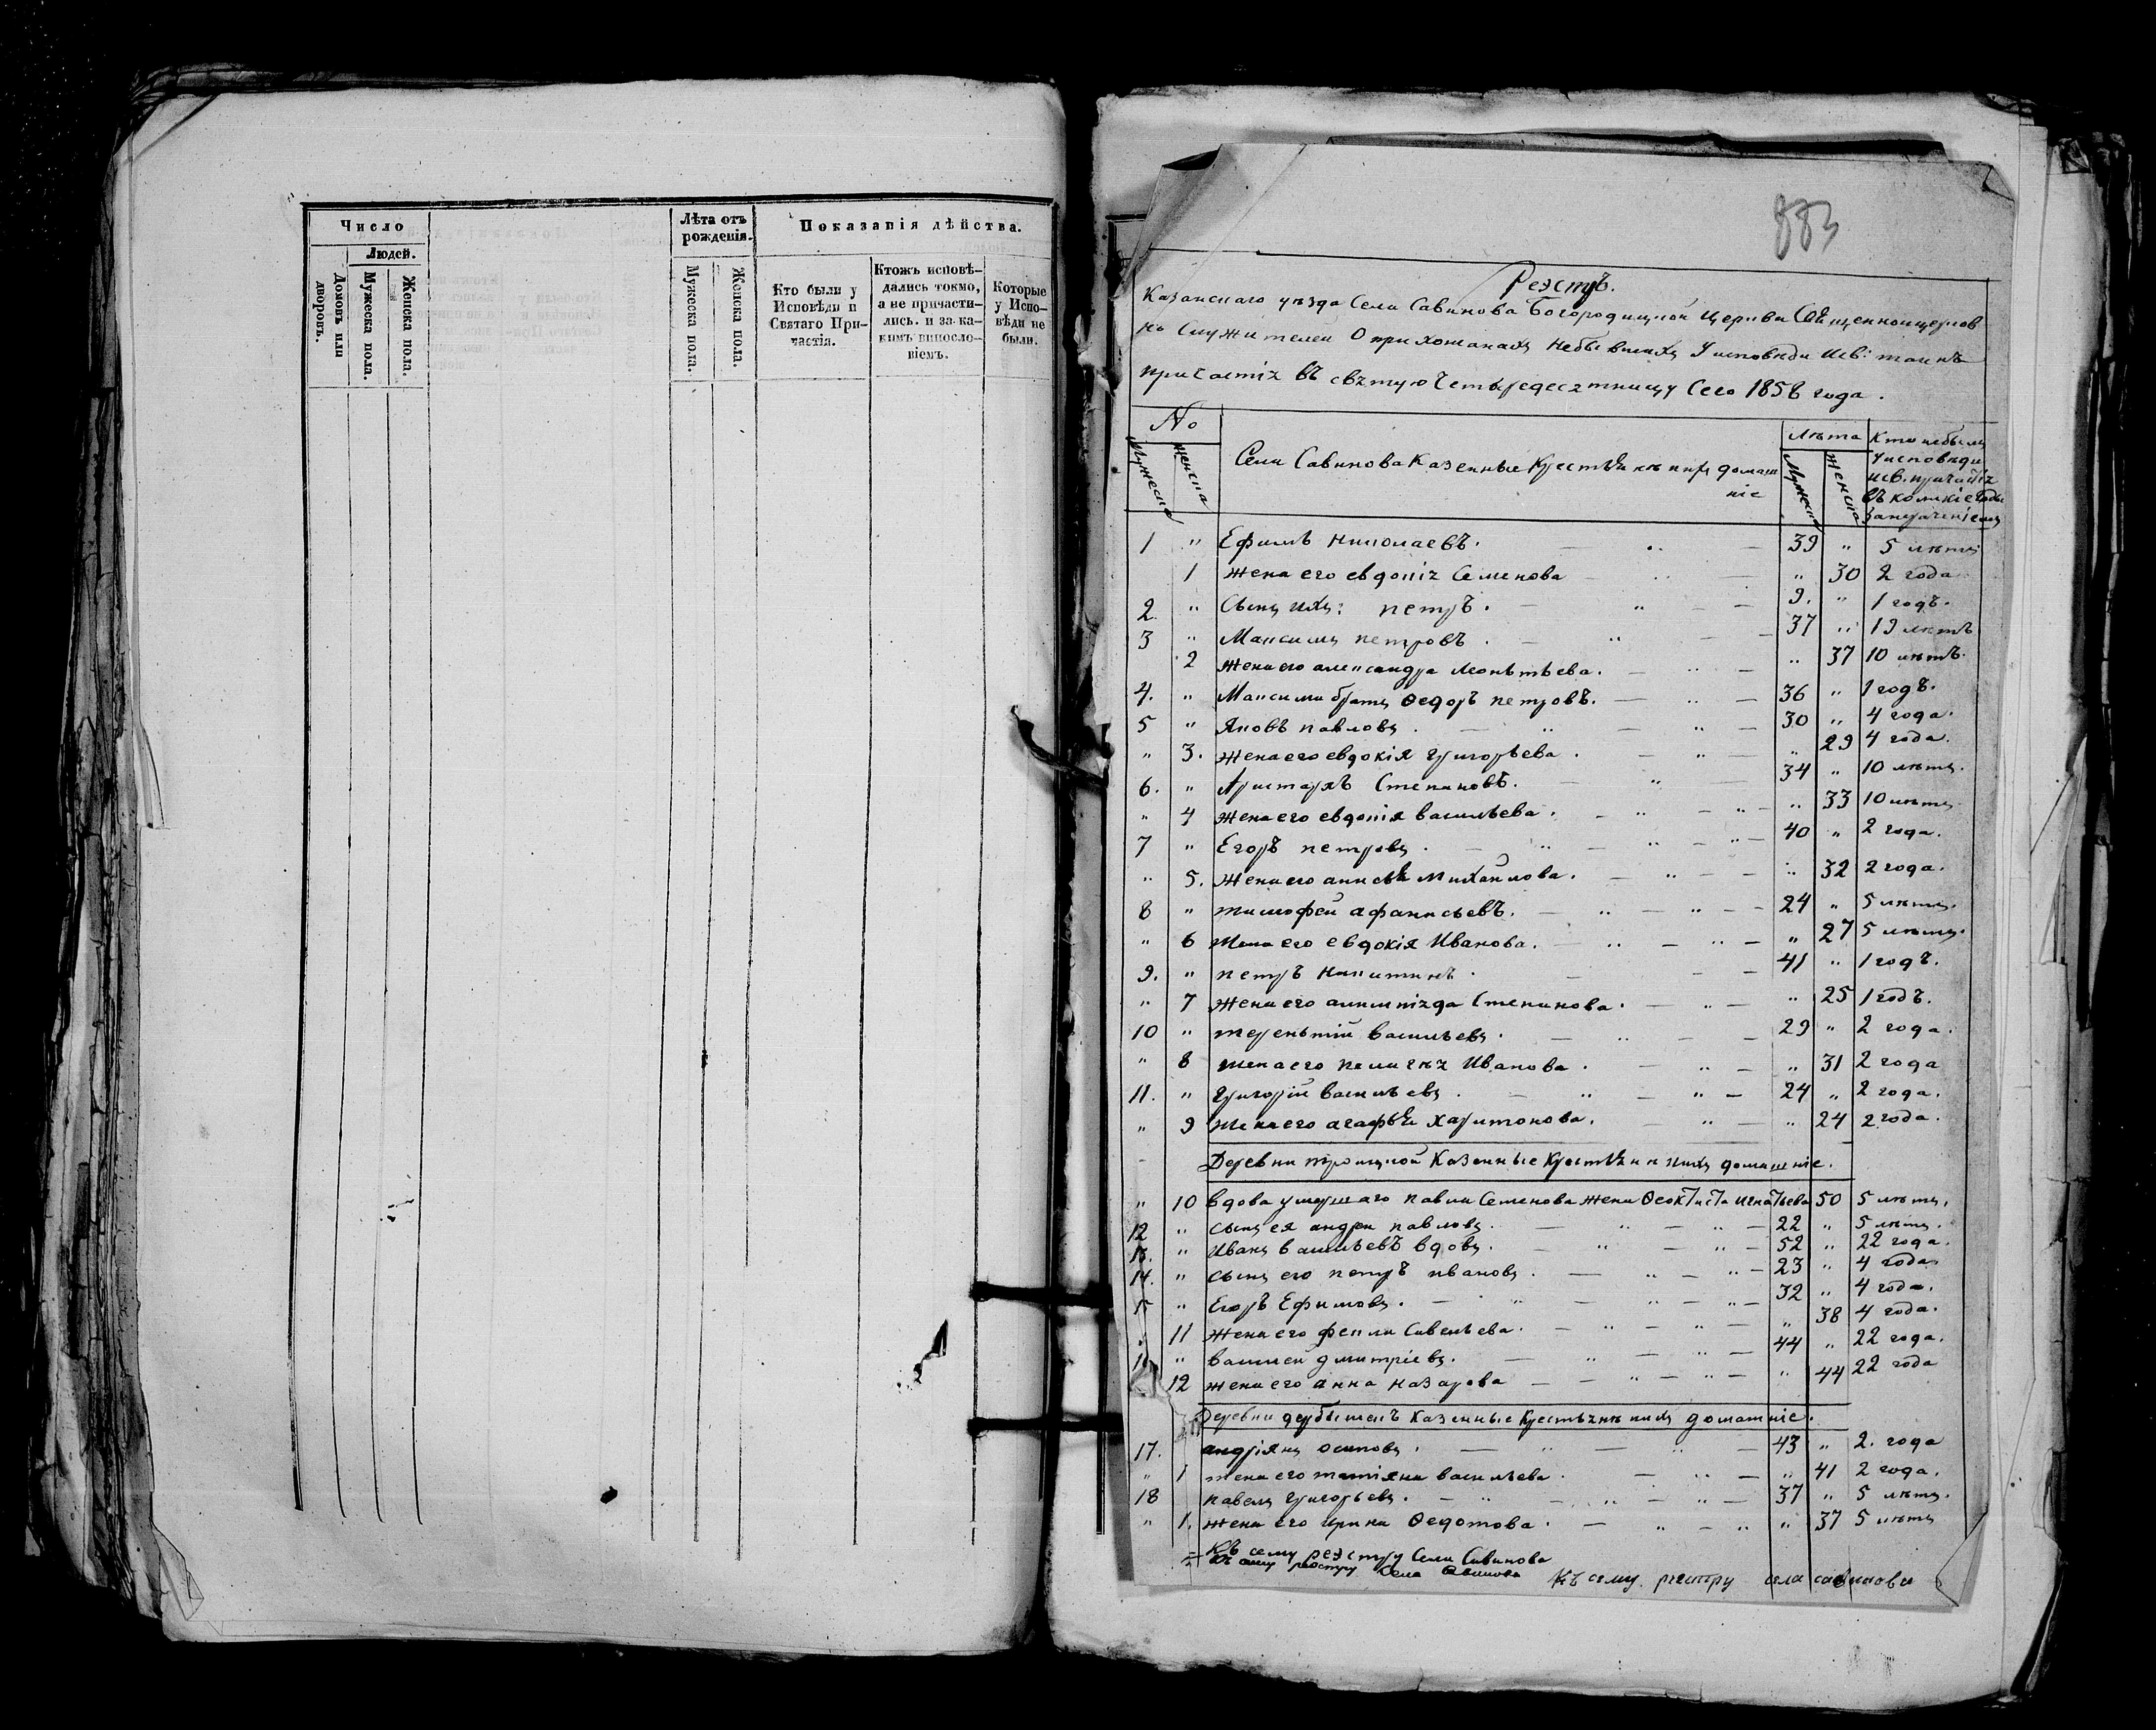 Число
Людей.
Домовъ или дворовъ.
Мужеска пола.
Женска пола.
Лѣта отъ рожденія.
Мужеска пола.
Женска пола.
Показанія дѣйства.
Кто были у Исповѣди и Святаго Причастія.
Ктожъ исповѣ-
дались токмо,
а не причасти-
лись. и за ка-
кимъ винносло-
віемъ.
Которые
у Испо-
вѣди не
были.
883
Реэстръ.
Казанскаго уѣзда Села Савинова Богородицкой Церкви Священноцерков
но Служителей О прихожанахъ Небывшихъ У исповѣди И св: таинъ
причастія въ святую Четыредесятницу Сего 1858 года.
No
Мужеска
Женска
Села Савинова Казенные Крестьяне и ихъ домаш
ніе
Лѣта
Мужеска
Женска
Кто небылъ
У исповѣди
и св. причастія
въ коликіе годы
1 " Ефимъ Николаевъ. 39 " 5 лѣтъ
1 Жена его евдокія Семенова " 30 2 года
2. " Сынъ ихъ: петръ. 9. " 1 годъ.
3 " Максимъ петровъ. 37 " 19 лѣтъ
2 Жена его александра Леонтьева. " 37 10 лѣтъ.
4. " Максима братъ Ѳедоръ петровъ. 36 " 1 годъ.
5 " Яковъ павловъ. 30 " 4 года.
" 3. Жена его евдокія григорьева. " 29 4 года.
6. " Аристархъ Степановъ. 34 " 10 лѣтъ.
" 4 Жена его евдокія васильева. " 33 10 лѣтъ
7 " Егоръ петровъ. 40 " 2 года.
" 5. Жена его анисья Михайлова. " 32 2 года.
8 " тимофей афанасьевъ. 24 " 5 лѣтъ.
" 6 Жена его евдокія Иванова. " 27 5 лѣтъ.
9. " петръ Никитинъ. 41 " 1 годъ.
" 7 Жена его алимпіяда Степанова. " 25 1 годъ.
10 " терентій васильевъ. 29 " 2 года.
" 8 Жена его пелагѣя Иванова. " 31 2 года
11. " григорій васильевъ. 24 " 2 года.
" 9 Жена его агафья Харитонова. " 24 2 года.
Деревни троицкой Казенные Крестьяне и ихъ домашніе.
" 10 вдова умершаго павла Семенова жена Ѳеоктиста Игнатьева 50 5 лѣтъ.
12 " сынъ ея андрей павловъ. 22 " 5 лѣтъ.
13. " Иванъ васильевъ вдовъ. 52 " 22 года.
14. " сынъ его петръ ивановъ. 23 " 4 года
15 " Егоръ Ефимовъ. 32 " 4 года.
11 Жена его фекла Савельева. " 38 4 года.
" василей дмитріевъ. 44 " 22 года.
12 жена его анна назарова " 44 22 года
Деревни дербышекъ Казенные Крестьяне и ихъ домашніе.
17. андріянъ осиповъ. 43 " 2. года
" 1 жена его татіяна васильева. " 41 2 года.
18 павелъ григорьевъ. 37 " 5 лѣтъ.
" 1. жена его ирина Ѳедотова. " 37 5 лѣтъ
Къ сему реэстру Села Савинова
Къ сему реэстру Села Савинова
Къ сему реестру села савинова